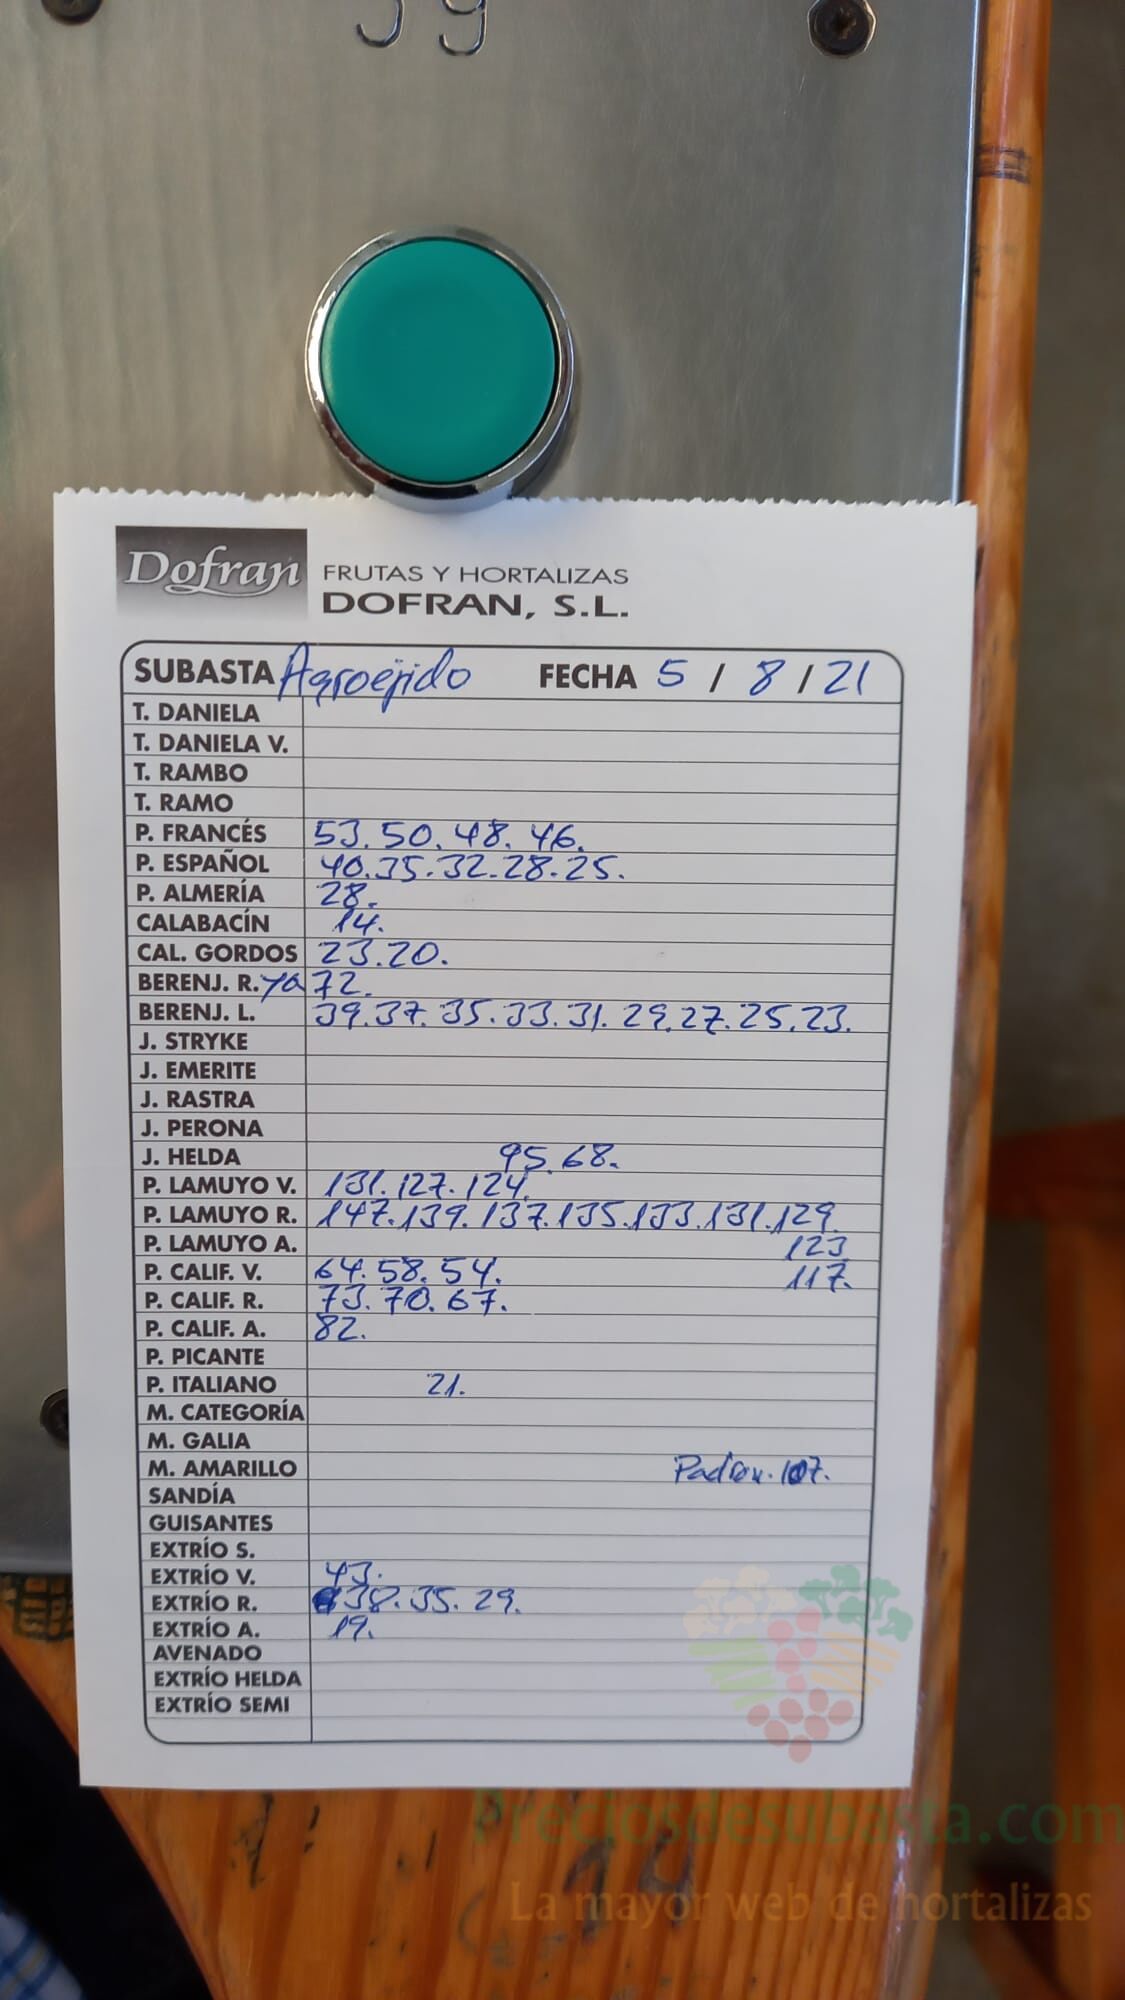 39
Dofran FRUTAS Y HORTALIZAS
DOFRAN, S.L.
SUBASTA Agroejido FECHA 5 / 8 / 21
T. DANIELA
T. DANIELA V.
T. RAMBO
T. RAMO
P. FRANCÉS 53. 50. 48. 46.
P. ESPAÑOL 40. 35. 32. 28. 25.
P. ALMERÍA 28.
CALABACÍN 14.
CAL. GORDOS 23. 20.
BERENJ. R. ya 72.
BERENJ. L. 39. 37. 35. 33. 31. 29. 27. 25. 23.
J. STRYKE
J. EMERITE
J. RASTRA
J. PERONA
J. HELDA 95. 68.
P. LAMUYO V. 131. 127. 124.
P. LAMUYO R. 147. 139. 137. 135. 133. 131. 129.
P. LAMUYO A. 123
P. CALIF. V. 64. 58. 54. 117.
P. CALIF. R. 73. 70. 67.
P. CALIF. A. 82.
P. PICANTE
P. ITALIANO 21.
M. CATEGORÍA
M. GALIA
M. AMARILLO Padron. 107.
SANDÍA
GUISANTES
EXTRÍO S.
EXTRÍO V. 43.
EXTRÍO R. 38. 35. 29.
EXTRÍO A. 19.
AVENADO
EXTRÍO HELDA
EXTRÍO SEMI
Preciosdesubasta.com
La mayor web de hortalizas